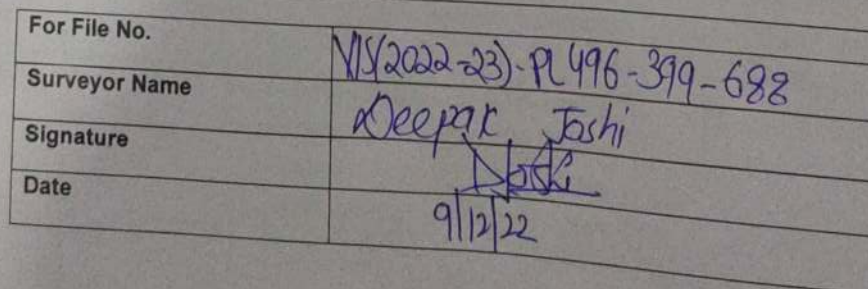 For File No. VIS(2022-23)-PL496-399-688
Surveyor Name Deepak Joshi
Signature DJoshi
Date 9/12/22